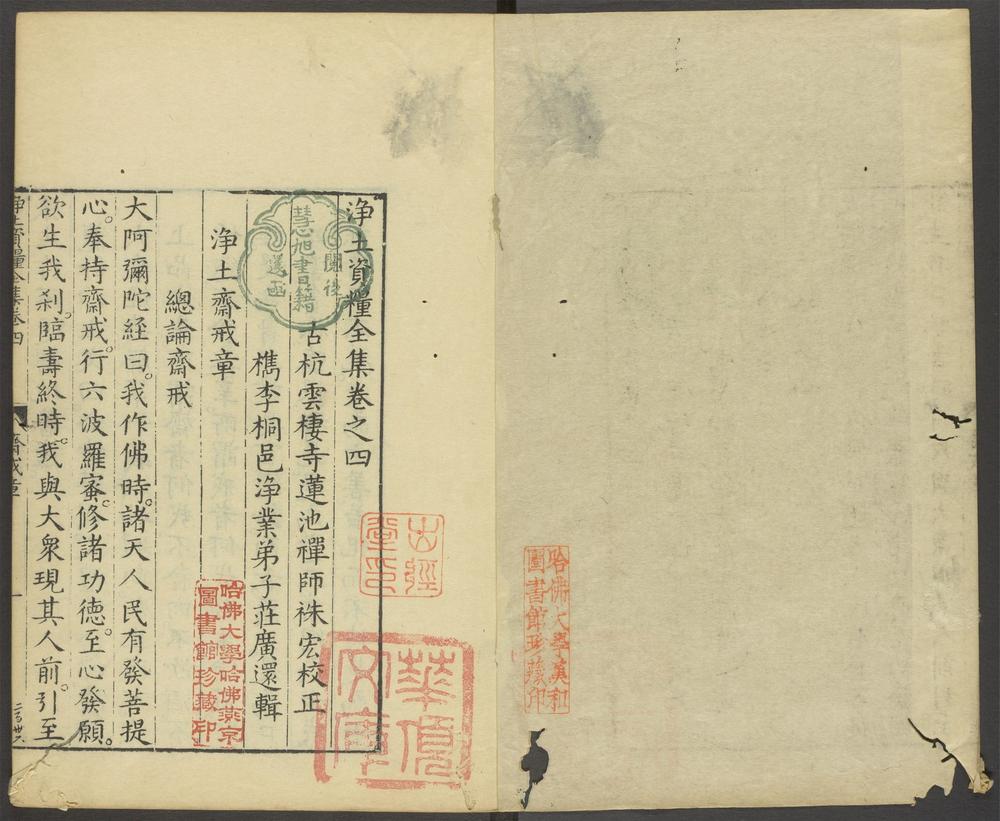 哈佛大學漢和
圖書館珍藏印
淨土資糧全集卷之四
古杭雲棲寺蓮池禪師袾宏校正
檇李桐邑淨業弟子莊廣還輯
淨土齋戒章
總論齋戒
大阿彌陀經曰。我作佛時。諸天人民有發菩提
心。奉持齋戒。行六波羅蜜。修諸功德。至心發願。
欲生我刹。臨壽終時。我與大衆現其人前。引至
淨土資糧全集卷四
齋戒章
一
閱後
慧旭書籍
還函
古經
堂印
華頂
文庫
哈佛大學哈佛燕京
圖書館珍藏印